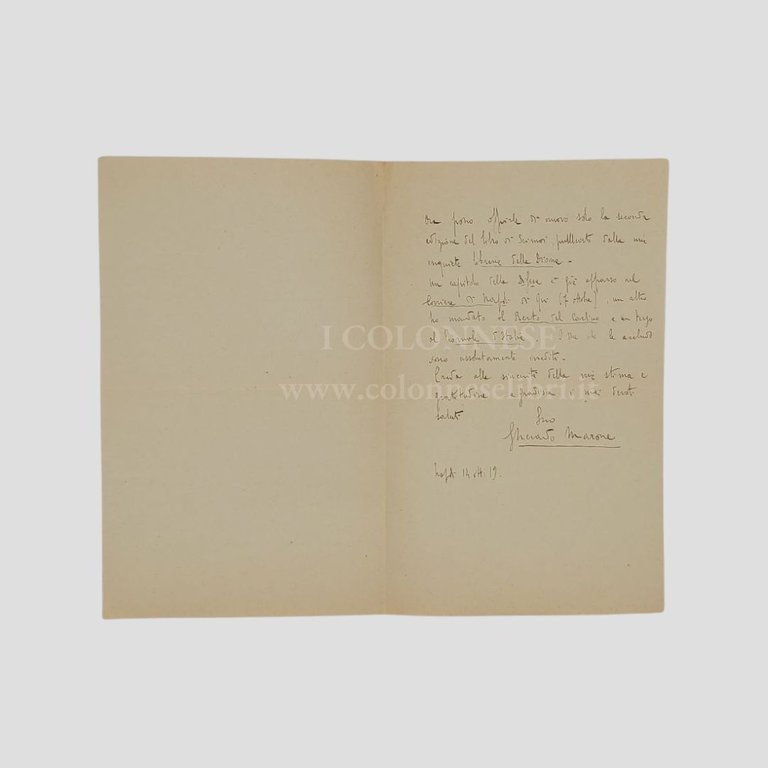 Ora posso offrirle di nuovo solo la seconda
edizione del libro di pubblicato dalla mia
inquieta Libreria della Diana.
Un capitolo della Difesa è già apparso nel
Corriere di Napoli di qui (7 ottobre), un altro
ho mandato al Resto del Carlino e un terzo
al Giornale d'Italia. che le accludo
sono assolutamente inediti.
Creda alla sincerità della mia stima e
gratitudine e gradisca i miei devoti
saluti
Suo
Gherardo Marone
Napoli 14 ott. 19.
I COLONNESE
www.colonneselibri.it